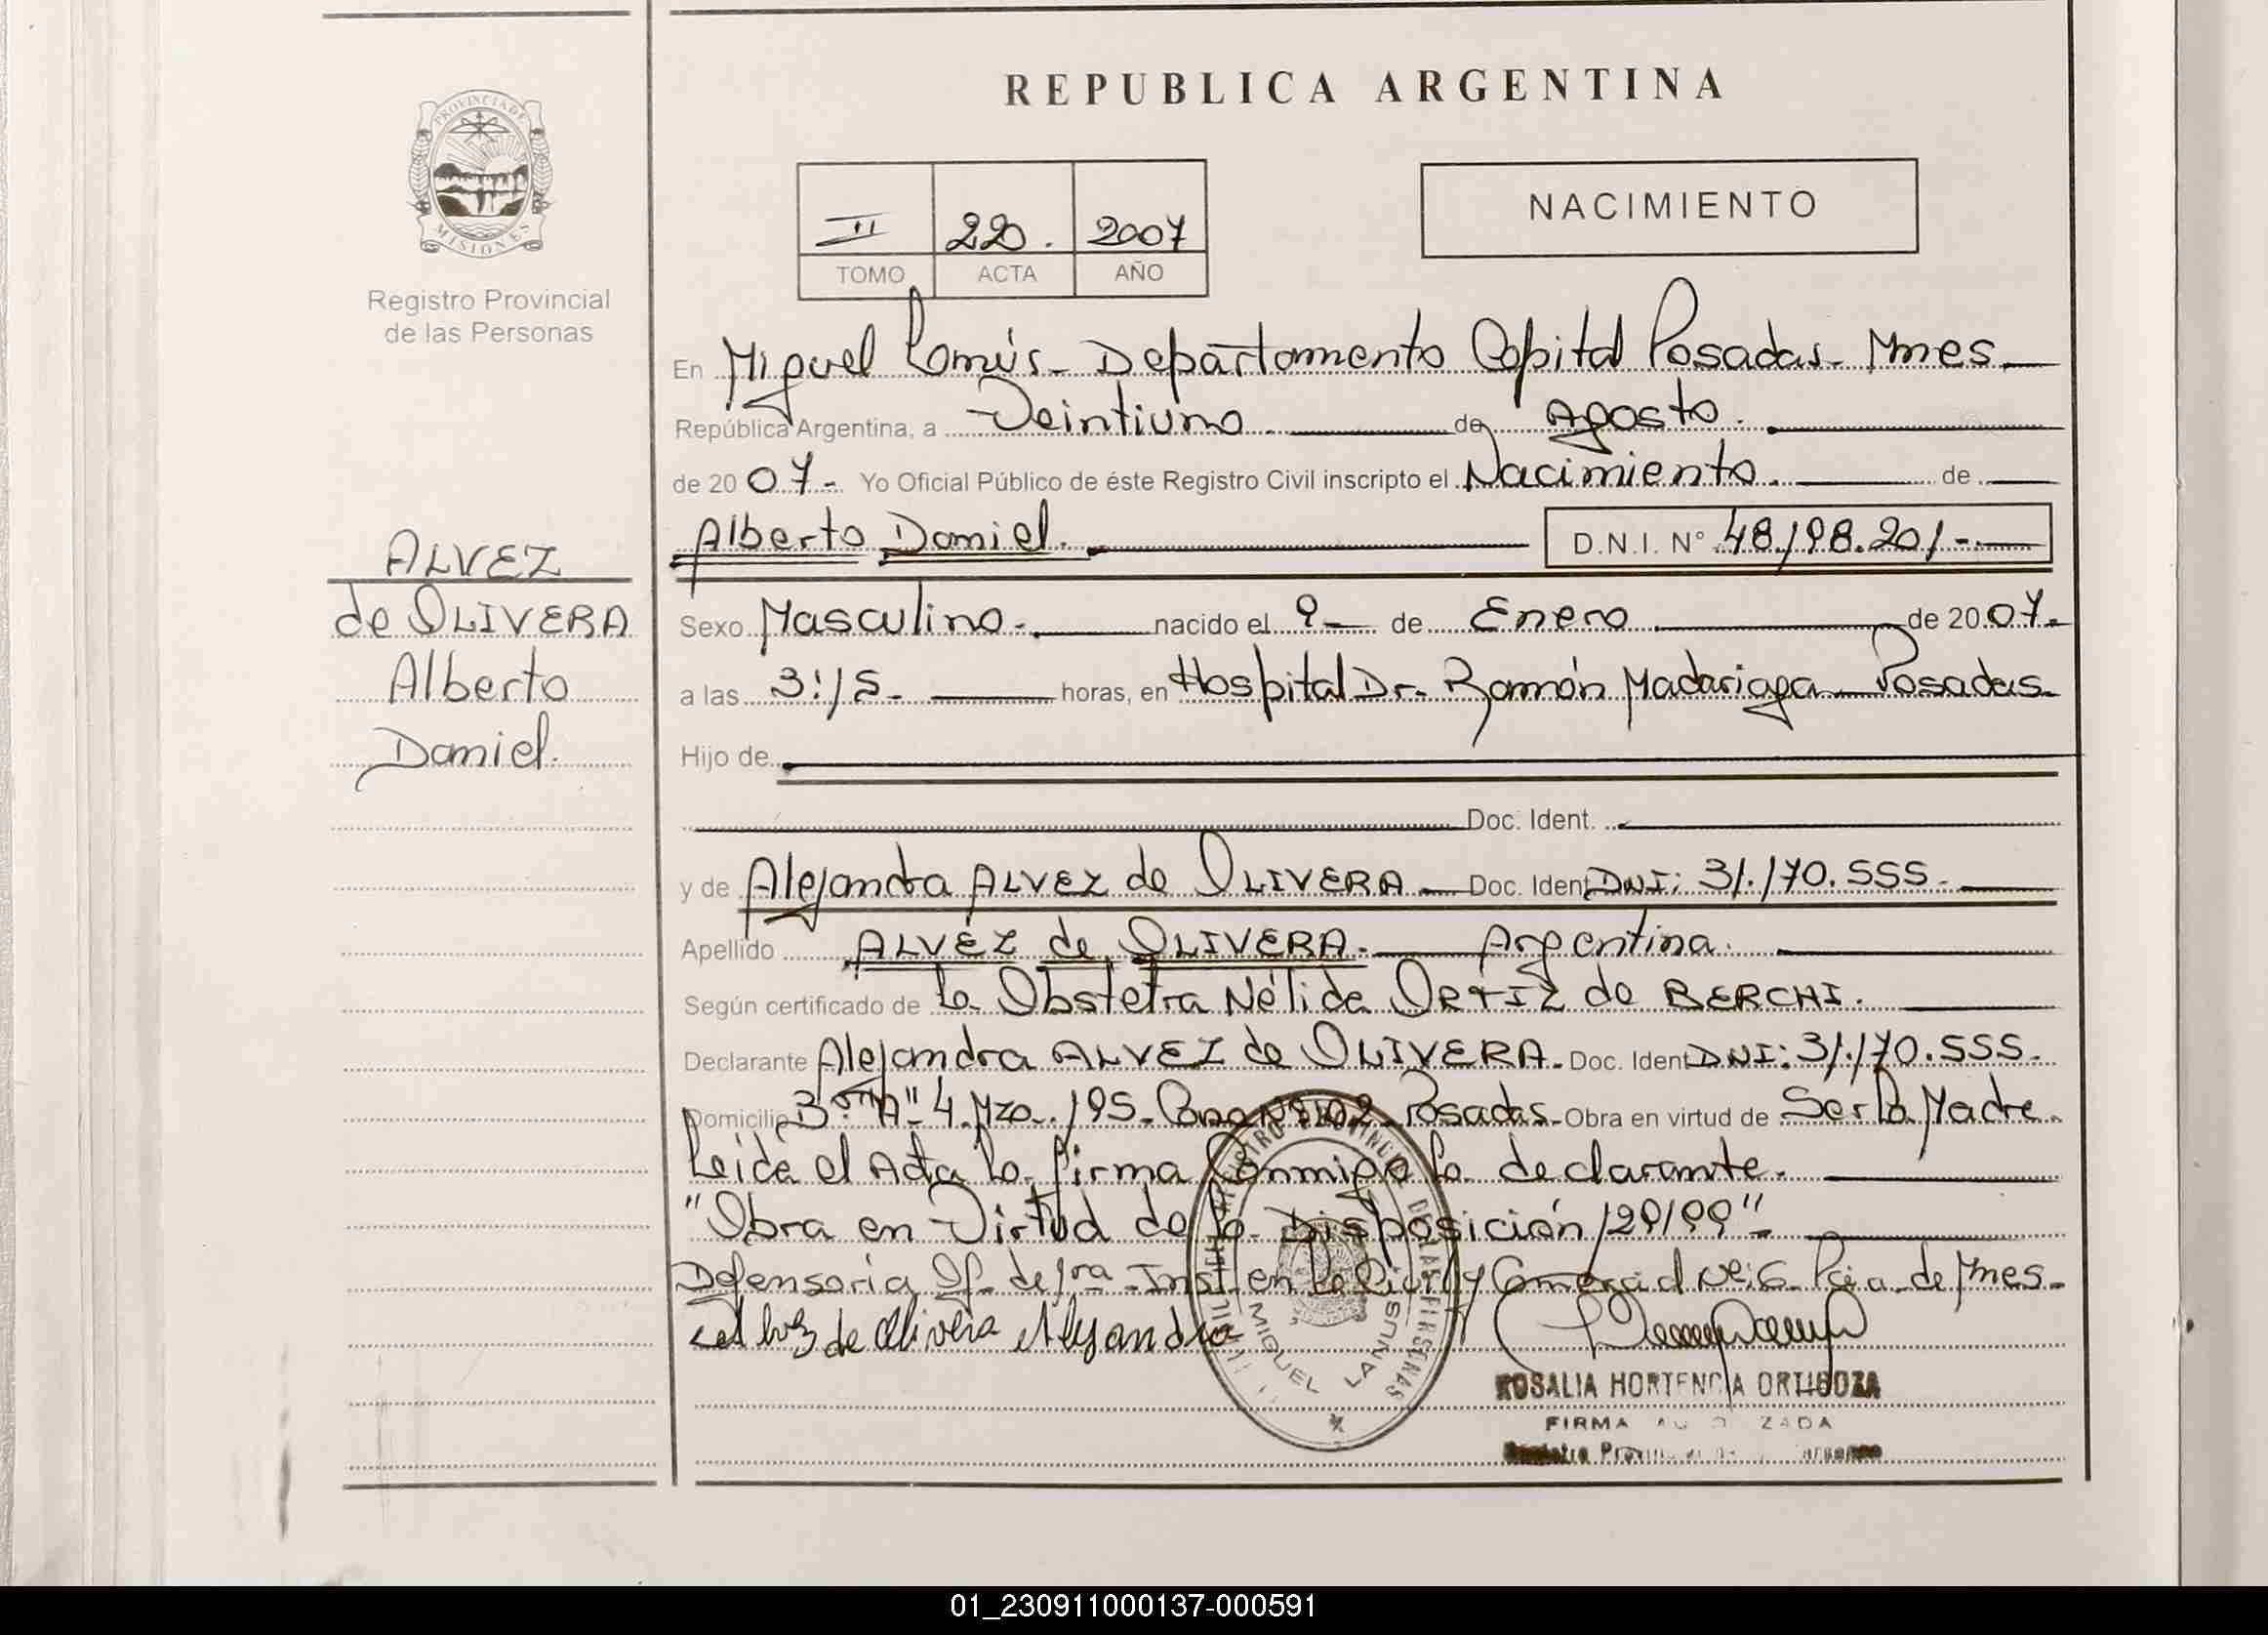 REPUBLICA ARGENTINA
PROVINCIA DE
MISIONES
Registro Provincial
de las Personas
II 220. 2007
TOMO ACTA AÑO
NACIMIENTO
En Miguel Lanús - Departamento Capital Posadas - Mnes
República Argentina, a Veintiuno de Agosto.
de 2007- Yo Oficial Público de éste Registro Civil inscripto el Nacimiento. de
Alberto Daniel. D.N.I. N° 48.198.201-
ALVEZ
de OLIVERA
Alberto
Daniel.
Sexo Masculino. nacido el 9 de Enero de 2007.
a las 3:15- horas, en Hospital Dr. Ramón Madariaga - Posadas.
Hijo de
Doc. Ident.
y de Alejandra ALVEZ de OLIVERA - Doc. Ident DNI: 31.170.555.
Apellido ALVEZ de OLIVERA. Argentina.
Según certificado de la Obstetra Nélida ORTIZ de BERCHI.
Declarante Alejandra ALVEZ de OLIVERA. Doc. Ident DNI: 31.170.555.
Domicilio "A" 4. Mzo. 195- Posadas - Obra en virtud de Ser la Madre.
Leida el Acta la firma Conmigo la declarante.
"Obra en Virtud de la Disposición 129/99"
Defensoria Of. de 1ra Inst. en lo Civil y Comercial Nº 6 Pcia. de Mnes.
Alvez de Olivera Alejandra
MIGUEL LANUS
ROSALIA HORTENCIA ORTIGOZA
FIRMA AUTORIZADA
01_230911000137-000591